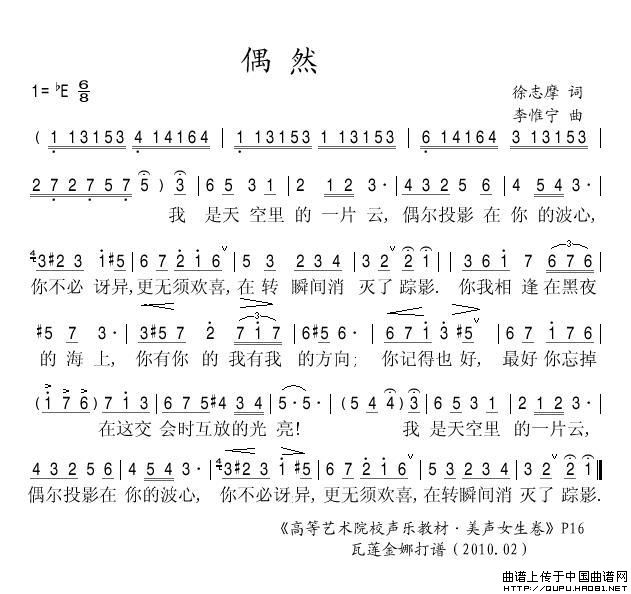 偶然
1=♭E 6/8
徐志摩 词
李惟宁 曲
( 1 13153 4 14164 | 1 13153 1 13153 | 6 14164 3 13153 |
2 7 2 7 5 7 5 ) 3 | 6 5 3 1 | 2 1 2 3· | 4 3 2 5 6 | 4 5 4 3· |
我 是天 空里 的 一片 云, 偶尔投影 在 你 的波心,
4 3 #2 3 1 #5 | 6 7 2 1 6 ˅ | 5 3 2 3 4 | 3 2 2 1 | 3 6 1 7 6 7 6 |
你不必 讶异, 更无须欢喜, 在 转 瞬间消 灭了踪影. 你我相 逢在黑夜
#5 7 3· | 3 #5 7 2 7 1 7 | 6 #5 6 6· | 6 7 1 3 #5 ˅ | 6 7 1 7 6 |
的 海 上, 你有你 的 我有我 的方向; 你记得也 好, 最好你忘掉
( 1 7 6 ) 7 1 3 | 6 7 5 #4 3 4 | 5·5· | ( 5 4 4 ) 3 | 6 5 3 1 | 2 1 2 3· |
在这交 会时互放的光 亮! 我 是天空里 的一片云,
4 3 2 5 6 | 4 5 4 3· | 4 3 #2 3 1 #5 | 6 7 2 1 6 ˅ | 5 3 2 3 4 | 3 2 2 1 ‖
偶尔投影在 你的波心, 你不必讶异, 更无须欢喜, 在转瞬间消 灭了踪影.
《高等艺术院校声乐教材·美声女生卷》P16
瓦莲金娜打谱(2010.02)
曲谱上传于中国曲谱网
HTTP://QUPU.HAO81.NET